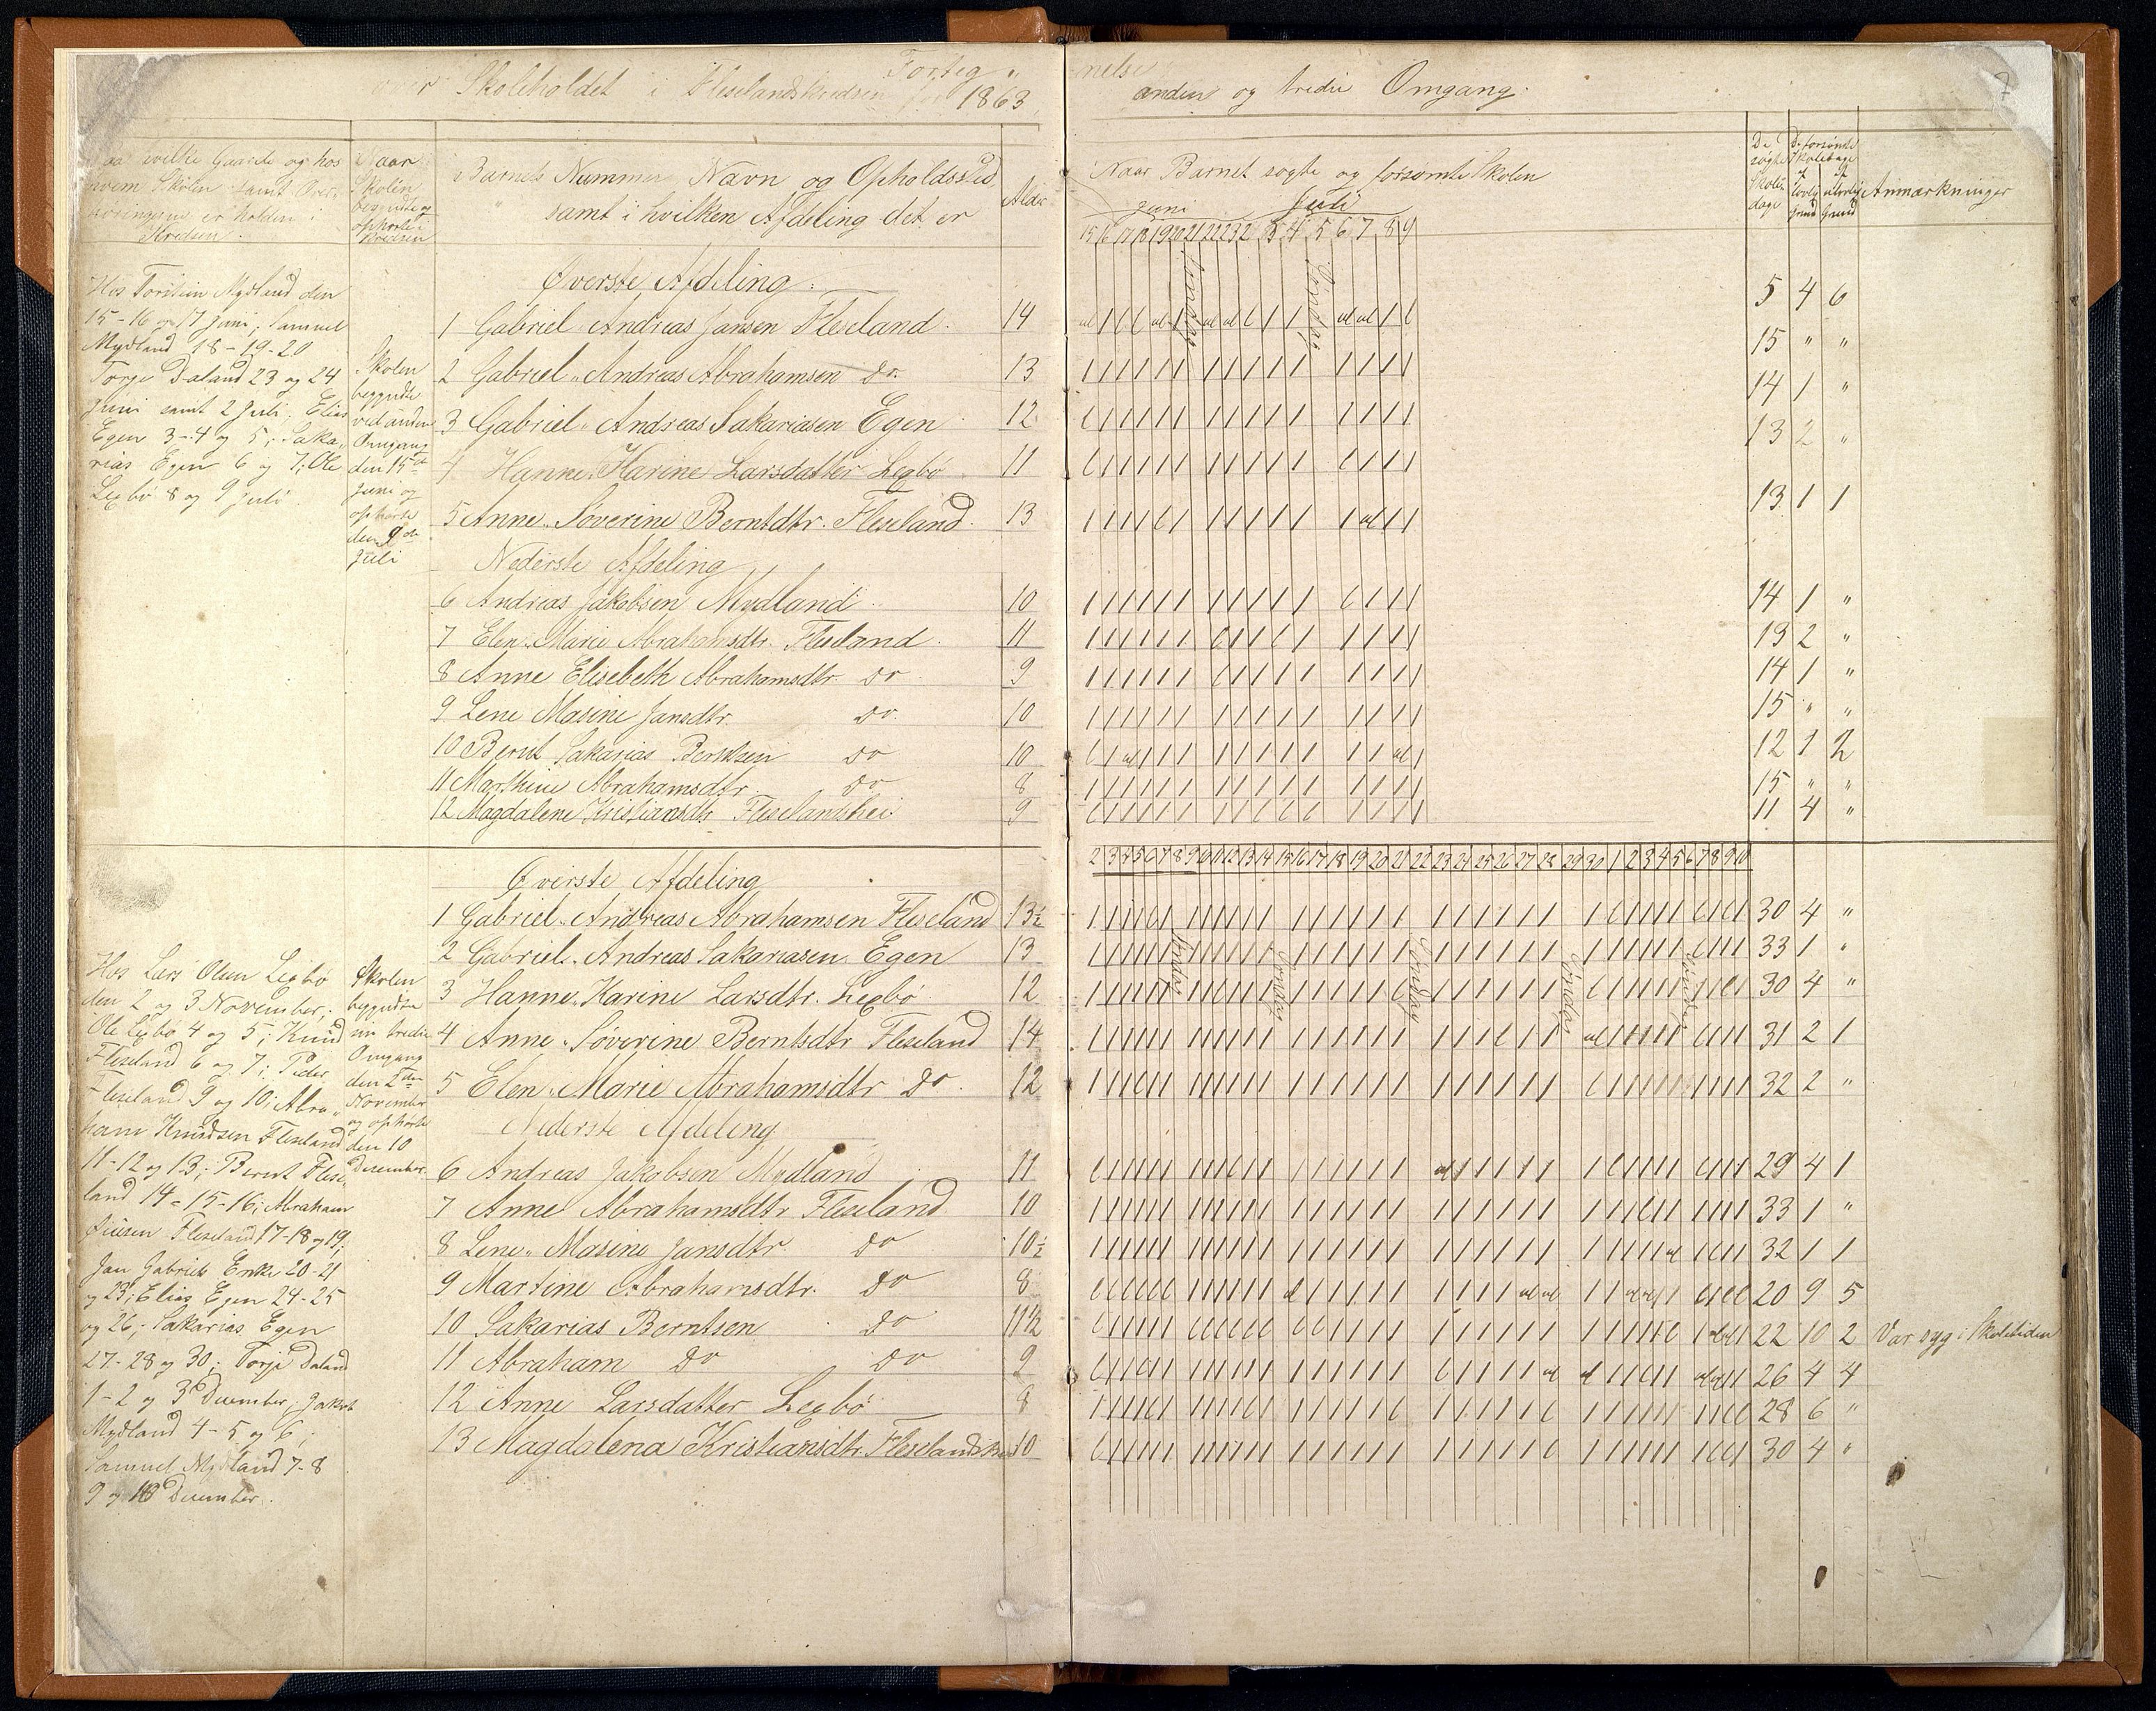 Forteg„ nelse
over Skoleholdet i Fleselandskredsen for 1863 anden og tredie Omgang.
7
Paa hvilke Gaarde og hos
hvem Skolen samt Over-
høringerne er holden i
Kredsen.
Naar
Skolen
begyndte og
ophørte i
Kredsen
Barnets Nummer, Navn og Opholdssted
samt i hvilken Afdeling det er
Alder
Naar Barnet søgte og forsømte Skolen
Juni Juli
15 16 17 18 19 20 21 22 23 2 3 4 5 6 7 8 9
De
søgte
Skole-
dage
De forsømte
Skoledage
af
lovlig
Grund
af
ulovlig
Grund
Anmærkninger
Hos Torstein Mydland den
15-16 og 17 Juni; Samuel
Mydland 18-19-20
Torje Daland 23 og 24
Juni samt 2 Juli; Elias
Egen 3-4 og 5; Saka„
rias Egen 6 og 7; Ole
Legbø 8 og 9 Juli.
Skolen
begyndte
ved anden
Omgang
den 15de
Juni og
ophørte
den 9de
Juli
Øverste Afdeling.
Søndag Søndag
1 Gabriel Andreas Jansen Fleseland. 14 5 4 6
2 Gabriel Andreas Abrahamsen do. 13 15 " "
3 Gabriel Andreas Sakariasen Egen 12 14 1 "
4 Hanne Karine Larsdatter Legbø 11 13 2 "
5 Anne Søverine Berntdtr. Fleseland. 13 13 1 1
Nederste Afdeling
6 Andreas Jakobsen Mydland 10 14 1 "
7 Elen Marie Abrahamsdtr. Fleseland. 11 13 2 "
8 Anne Elisebeth Abrahamsdtr. do 9 14 1 "
9 Lene Masine Jansdtr. do. 10 15 " "
10 Bernt Sakarias Berntsen do 10 12 1 2
11 Marthine Abrahamsdtr. do 8 15 " "
12 Magdalene Kristiansdtr Fleselandshei. 9 11 4 "
2 3 4 5 6 7 8 9 10 11 12 13 14 15 16 17 18 19 20 21 22 23 24 25 26 27 28 29 30 1 2 3 4 5 6 7 8 9 10
Hos Lars Olsen Legbø
den 2 og 3 November;
Ole Legbø 4 og 5; Knud
Fleseland 6 og 7; Peder
Fleseland 9 og 10; Abra„
ham Knudsen Fleseland
11-12 og 13; Bernt Flese„
land 14-15-16; Abraham
Fleseland 17-18 og 19;
Jan Gabriels Enke 20-21
og 23; Elias Egen 24-25
og 26; Sakarias Egen
27-28 og 30; Torje Daland
1-2 og 3 December; Jakob
Mydland 4-5 og 6;
Samuel Mydland 7-8
9 og 10 December.
Skolen
begyndte
tredie
Omgang
den 2den
November
og ophørte
den 10
December
Øverste Afdeling
Søndag Søndag Søndag Søndag Søndag
1 Gabriel Andreas Abrahamsen Fleseland 13½ 30 4 "
2 Gabriel Andreas Sakariasen Egen 13 33 1 "
3 Hanne Karine Larsdtr. Legbø 12 30 4 "
4 Anne Søverine Berntsdtr Fleseland 14 31 2 1
5 Elen Marie Abrahamsdtr do. 12 32 2 "
Nederste Afdeling
6 Andreas Jakobsen Mydland 11 29 4 1
7 Anne Abrahamsdtr Fleseland 10 33 1 "
8 Lene Masine Jansdtr do 10½ 32 1 1
9 Martine Abrahamsdtr. do 8 20 9 5
10 Sakarias Berntsen do 11½ 22 10 2 Var syg i Skoletiden
11 Abraham do do 9 26 4 4
12 Anne Larsdatter Legbø 8 28 6 "
13 Magdalena Kristiansdtr. Fleselandshei 10 30 4 "